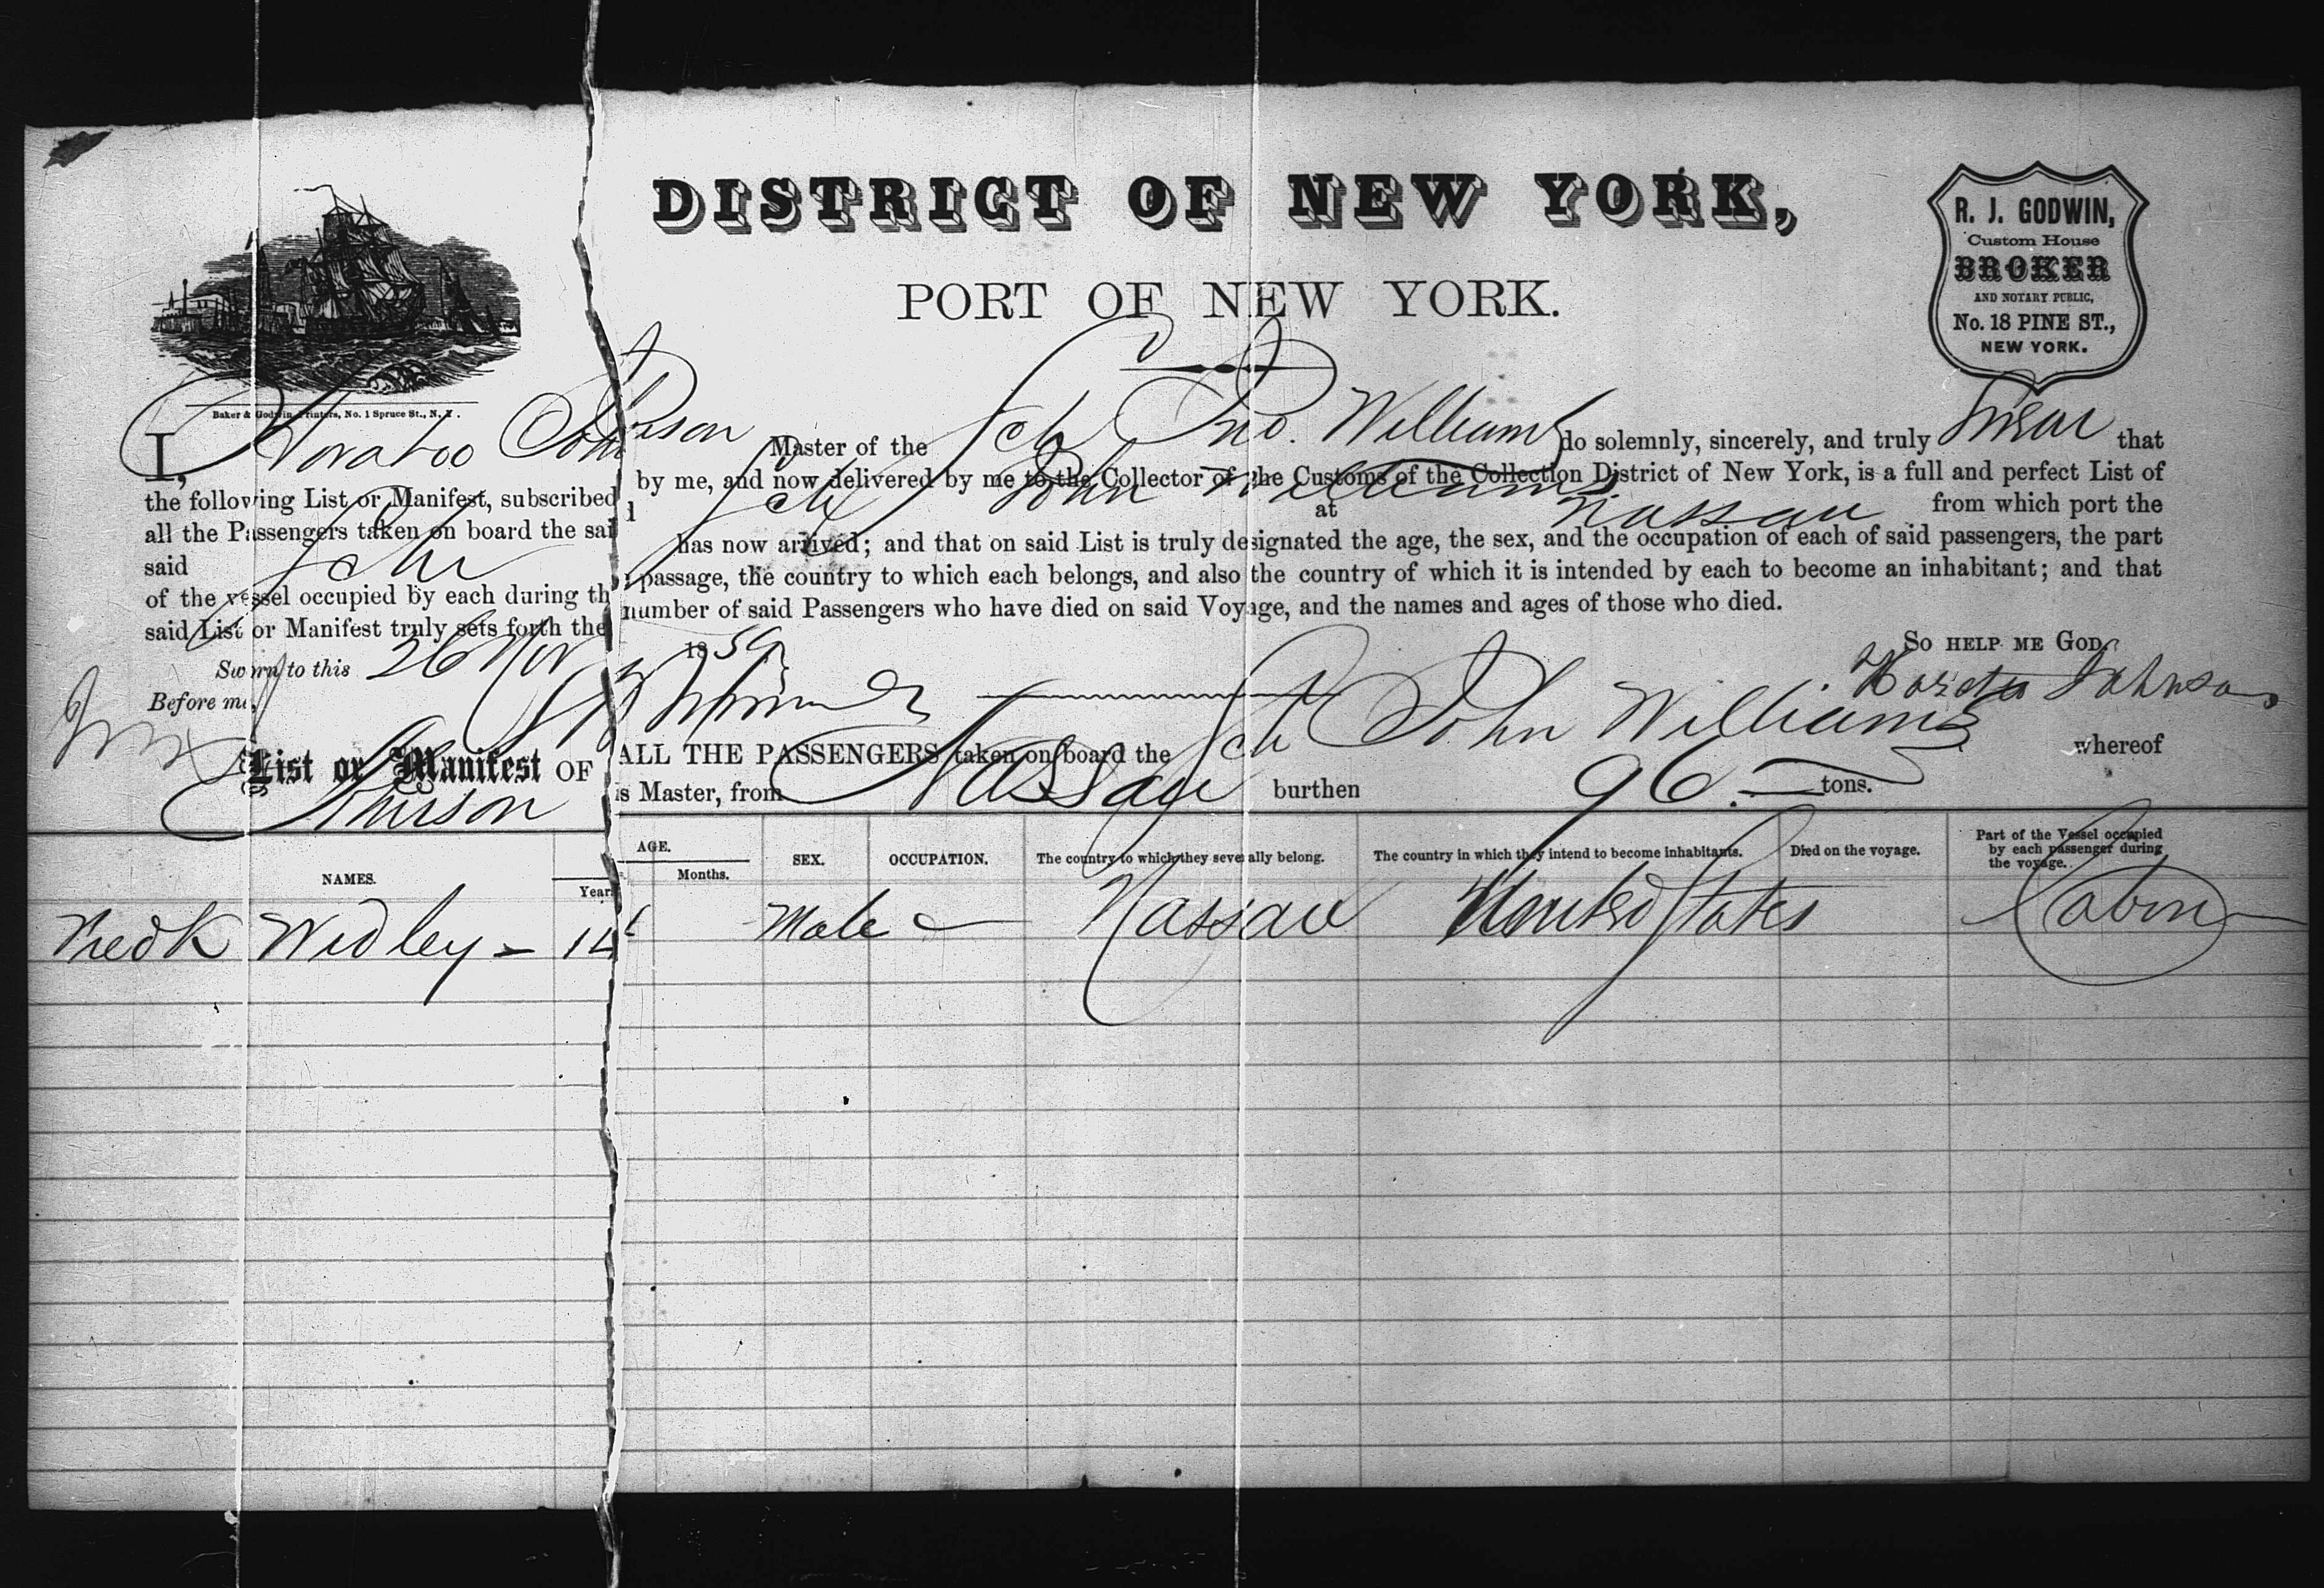 DISTRICT OF NEW YORK,
PORT OF NEW YORK.
R. J. GODWIN,
Custom House
BROKER
AND NOTARY PUBLIC,
No. 18 PINE ST.,
NEW YORK.
Baker & Godwin, Printers, No. 1 Spruce St., N. Y.
I, Master of the Sch Jno. Williams do solemnly, sincerely, and truly swear that
the following List or Manifest, subscribed by me, and now delivered by me to the Collector of the Customs of the Collection District of New York, is a full and perfect List of
all the Passengers taken on board the said Sch John Williams at Nassau from which port the
said Sch has now arrived; and that on said List is truly designated the age, the sex, and the occupation of each of said passengers, the part
of the vessel occupied by each during the passage, the country to which each belongs, and also the country of which it is intended by each to become an inhabitant; and that
said List or Manifest truly sets forth the number of said Passengers who have died on said Voyage, and the names and ages of those who died.
Sworn to this 26 Nov 1859 So help me God.
Before me, Johnson
List or Manifest OF ALL THE PASSENGERS taken on board the Sch John Williams whereof
Johnson is Master, from Nassau burthen 96 tons.
NAMES. AGE. Years. Months. SEX. OCCUPATION. The country to which they severally belong. The country in which they intend to become inhabitants. Died on the voyage. Part of the Vessel occupied by each passenger during the voyage.
Fredk Widley - 14 Male — Nassau United States Cabin